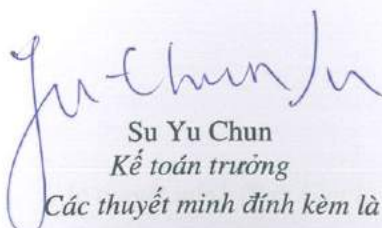 Yu-Chun Su
Su Yu Chun
Kế toán trưởng
Các thuyết minh đính kèm là